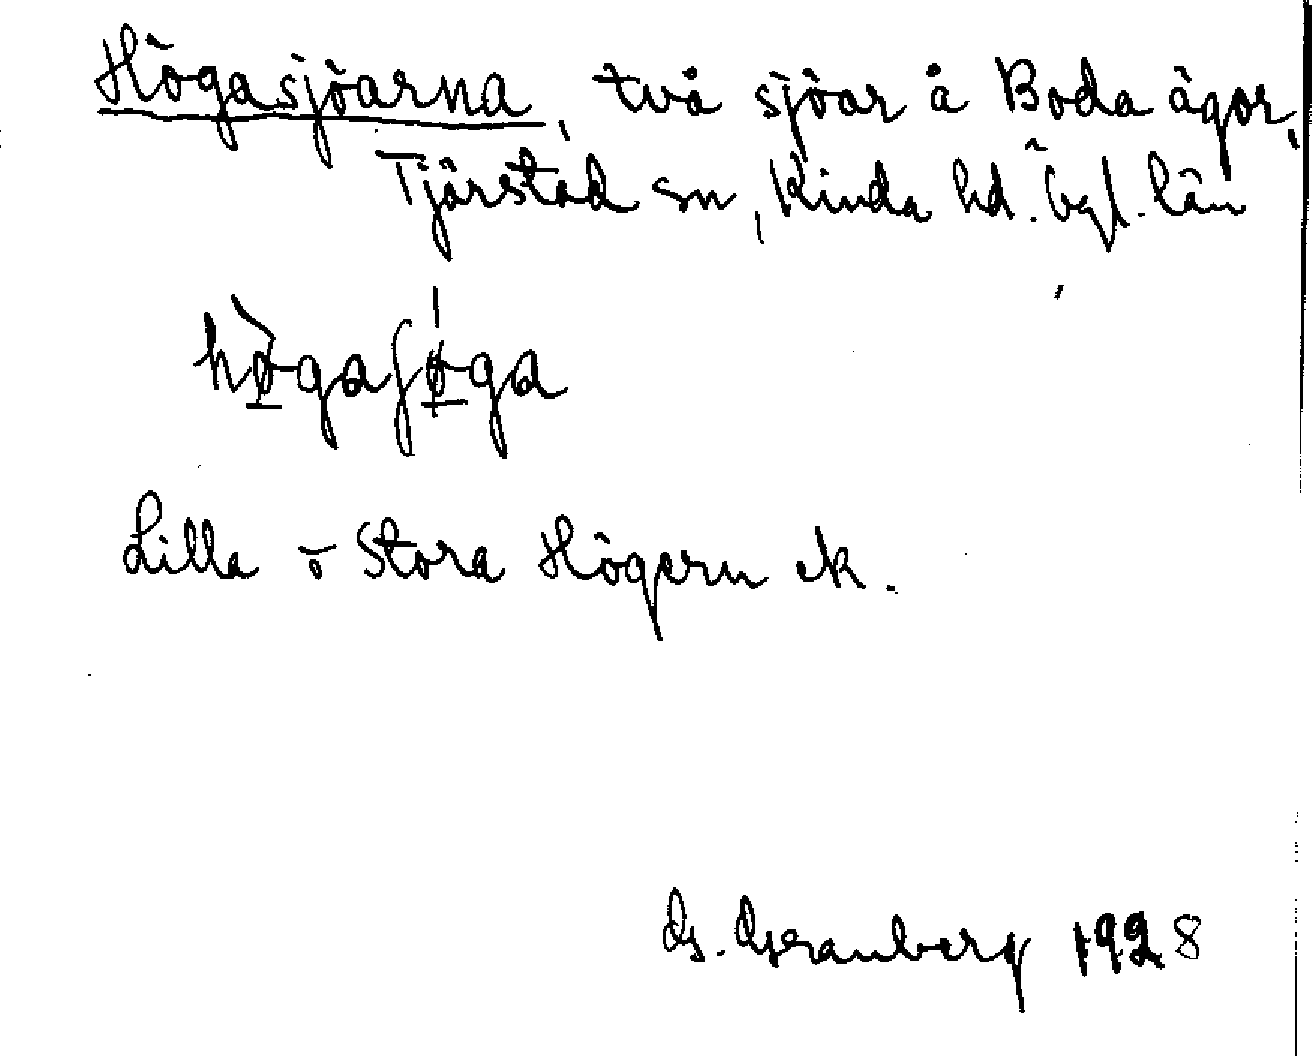 Högasjöarna, två sjöar å Boda ägor,
Tjärstad sn, Kinda hd. Ögl. län
högaʃöga
Lilla o Stora Högern ek.
G. Granberg 1928